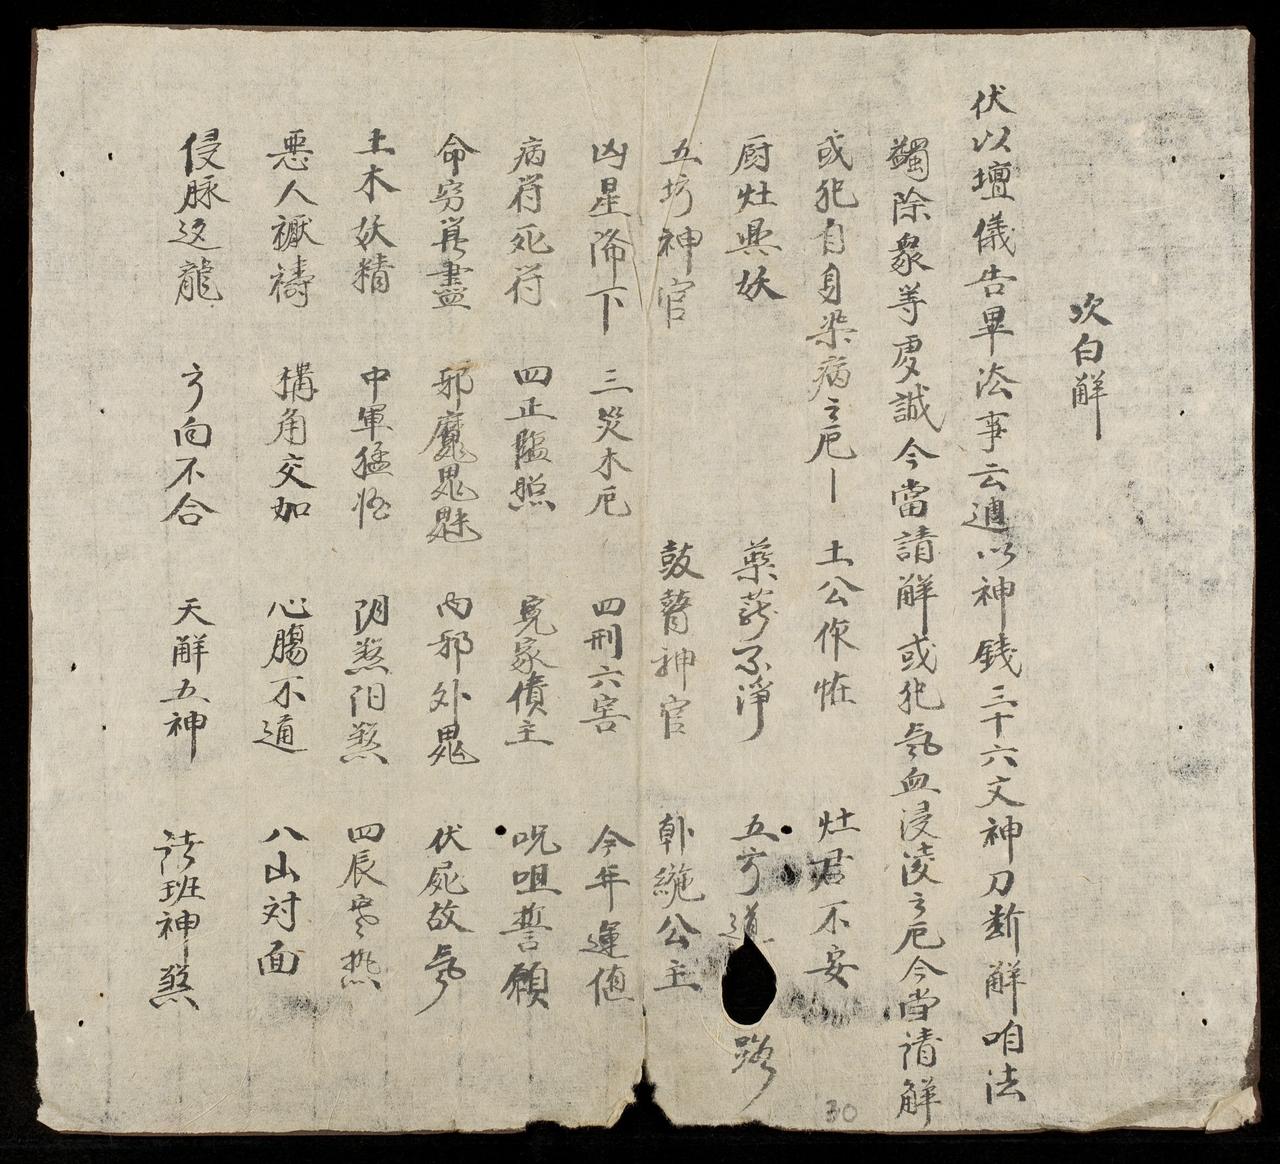 次白解
伏以壇儀告畢法事云通以神錢三十六文神刀断解咱法
蠲除衆等虔誠今當請解或犯氣血浸凌之厄今當請解
或犯自身染病之厄 土公作怪 灶君不安
厨灶興妖 藥莽不淨 五方道路
五方神官 鼓瞽神官 執繩公主
凶星降下 三災木厄 四刑六害 今年運值
病符死符 四正臨照 冤家債主 呪咀誓願
命穷筭盡 邪魔鬼魅 内邪外鬼 伏屍故氣
土木妖精 中軍猛将 阴煞阳煞 四辰寒熱
惡人禳禱 構角交加 心腸不通 八山対面
侵脉返龍 方向不合 天解五神 諸班神煞
30